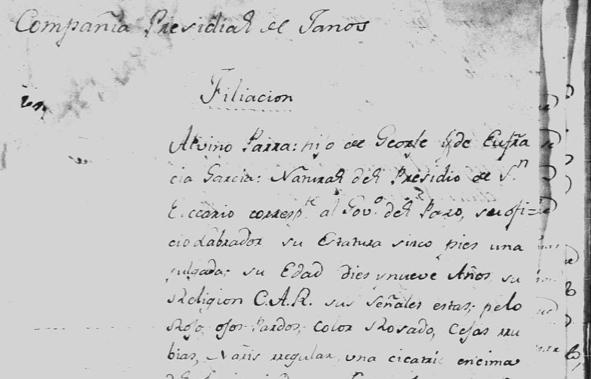 Compañia Presidial de Janos
Filiacion
Alvino Parra: hijo de George y de Eufra
cia Garcia: Natural del Presidio de Sn
Eccario correspte al Govo del Paso, su ofi=
cio labrador su Estatura sinco pies una
pulgada: su Edad dies ynueve Años su
Religion C.A.R. sus señales estas: pelo
Rojo, ojos Pardos, Color Rosado, Cejas ru
bias, Naris regular, una cicatris encima